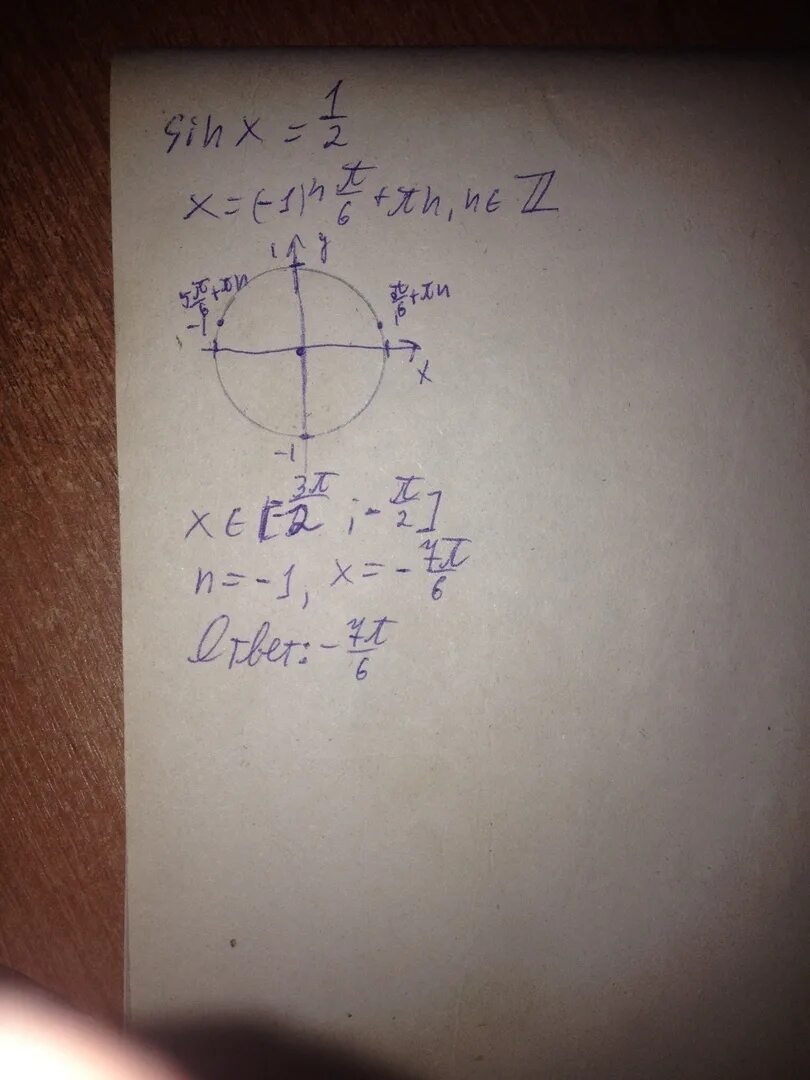 sin x = 1/2
x = (-1)ⁿ π/6 + πn, n ∈ ℤ
1 y
5π/6 + πn
π/6 + πn
-1
1
x
-1
x ∈ [-3π/2 ; -π/2]
n = -1, x = -7π/6
Ответ: -7π/6